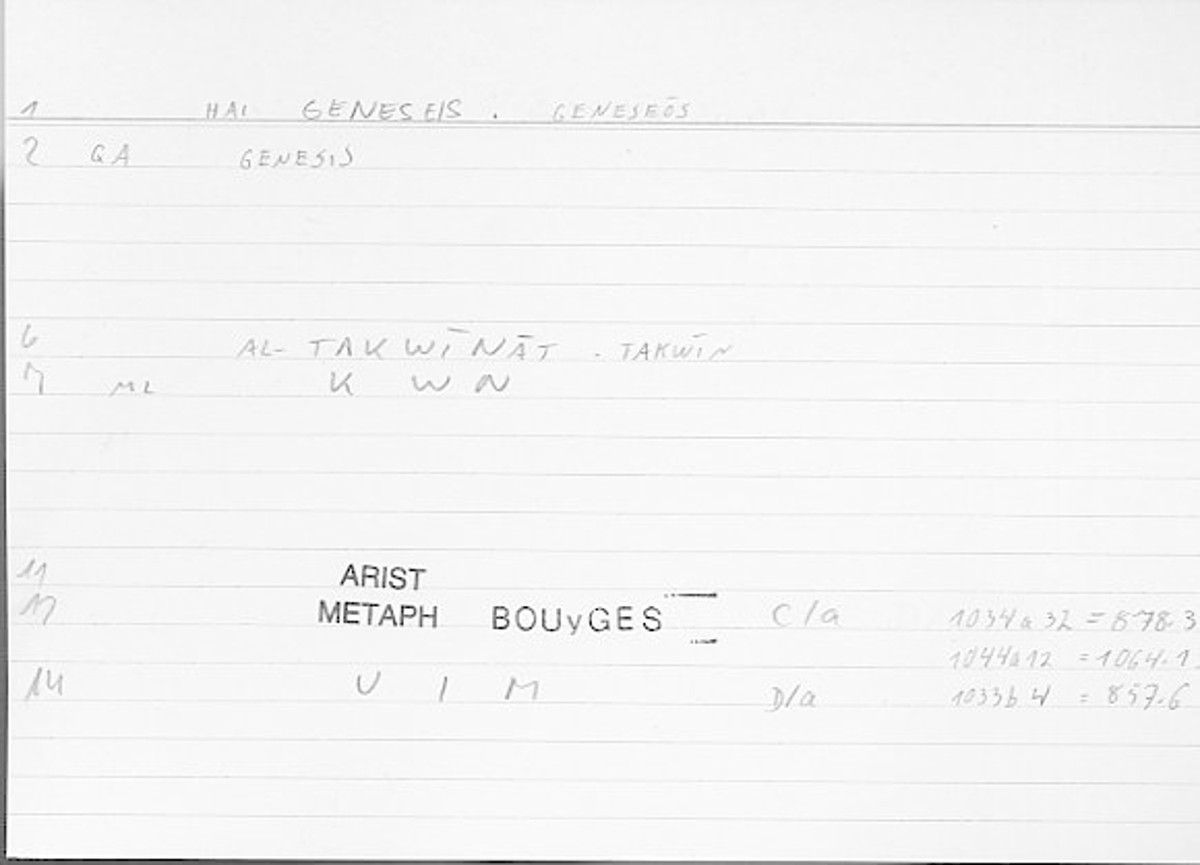 1 HAI GENESEIS . GENESEŌS
2 GA GENESIS
6 AL- TAKWĪNĀT . TAKWĪN
7 ML K W N
11 ARIST
METAPH BOUyGES C/a 1034a32 = 878.3
1044a12 = 1064.1
14 U I M D/a 1033b = 857.6